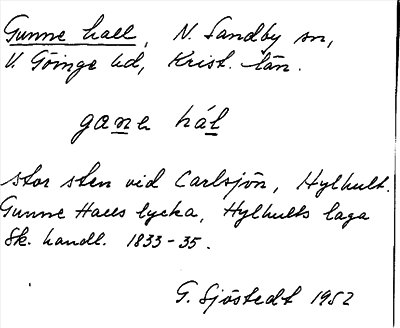 Gunne hall, N. Sandby sn,
V. Göinge hd, Krist. län.
gạne hál
stor sten vid Carlsjön, Hylhult.
Gunne Halls lycka, Hylhults laga
Sk. handl. 1833-35.
G. Sjöstedt 1952